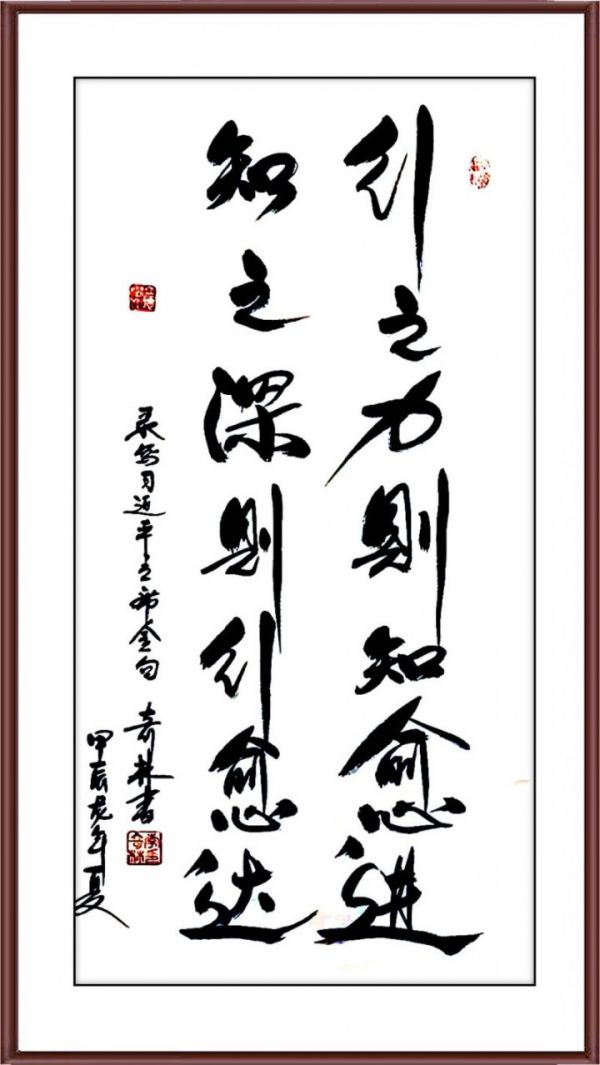 行之力则知愈进
知之深则行愈达
录习近平主席金句 奇林书
甲辰龙年夏